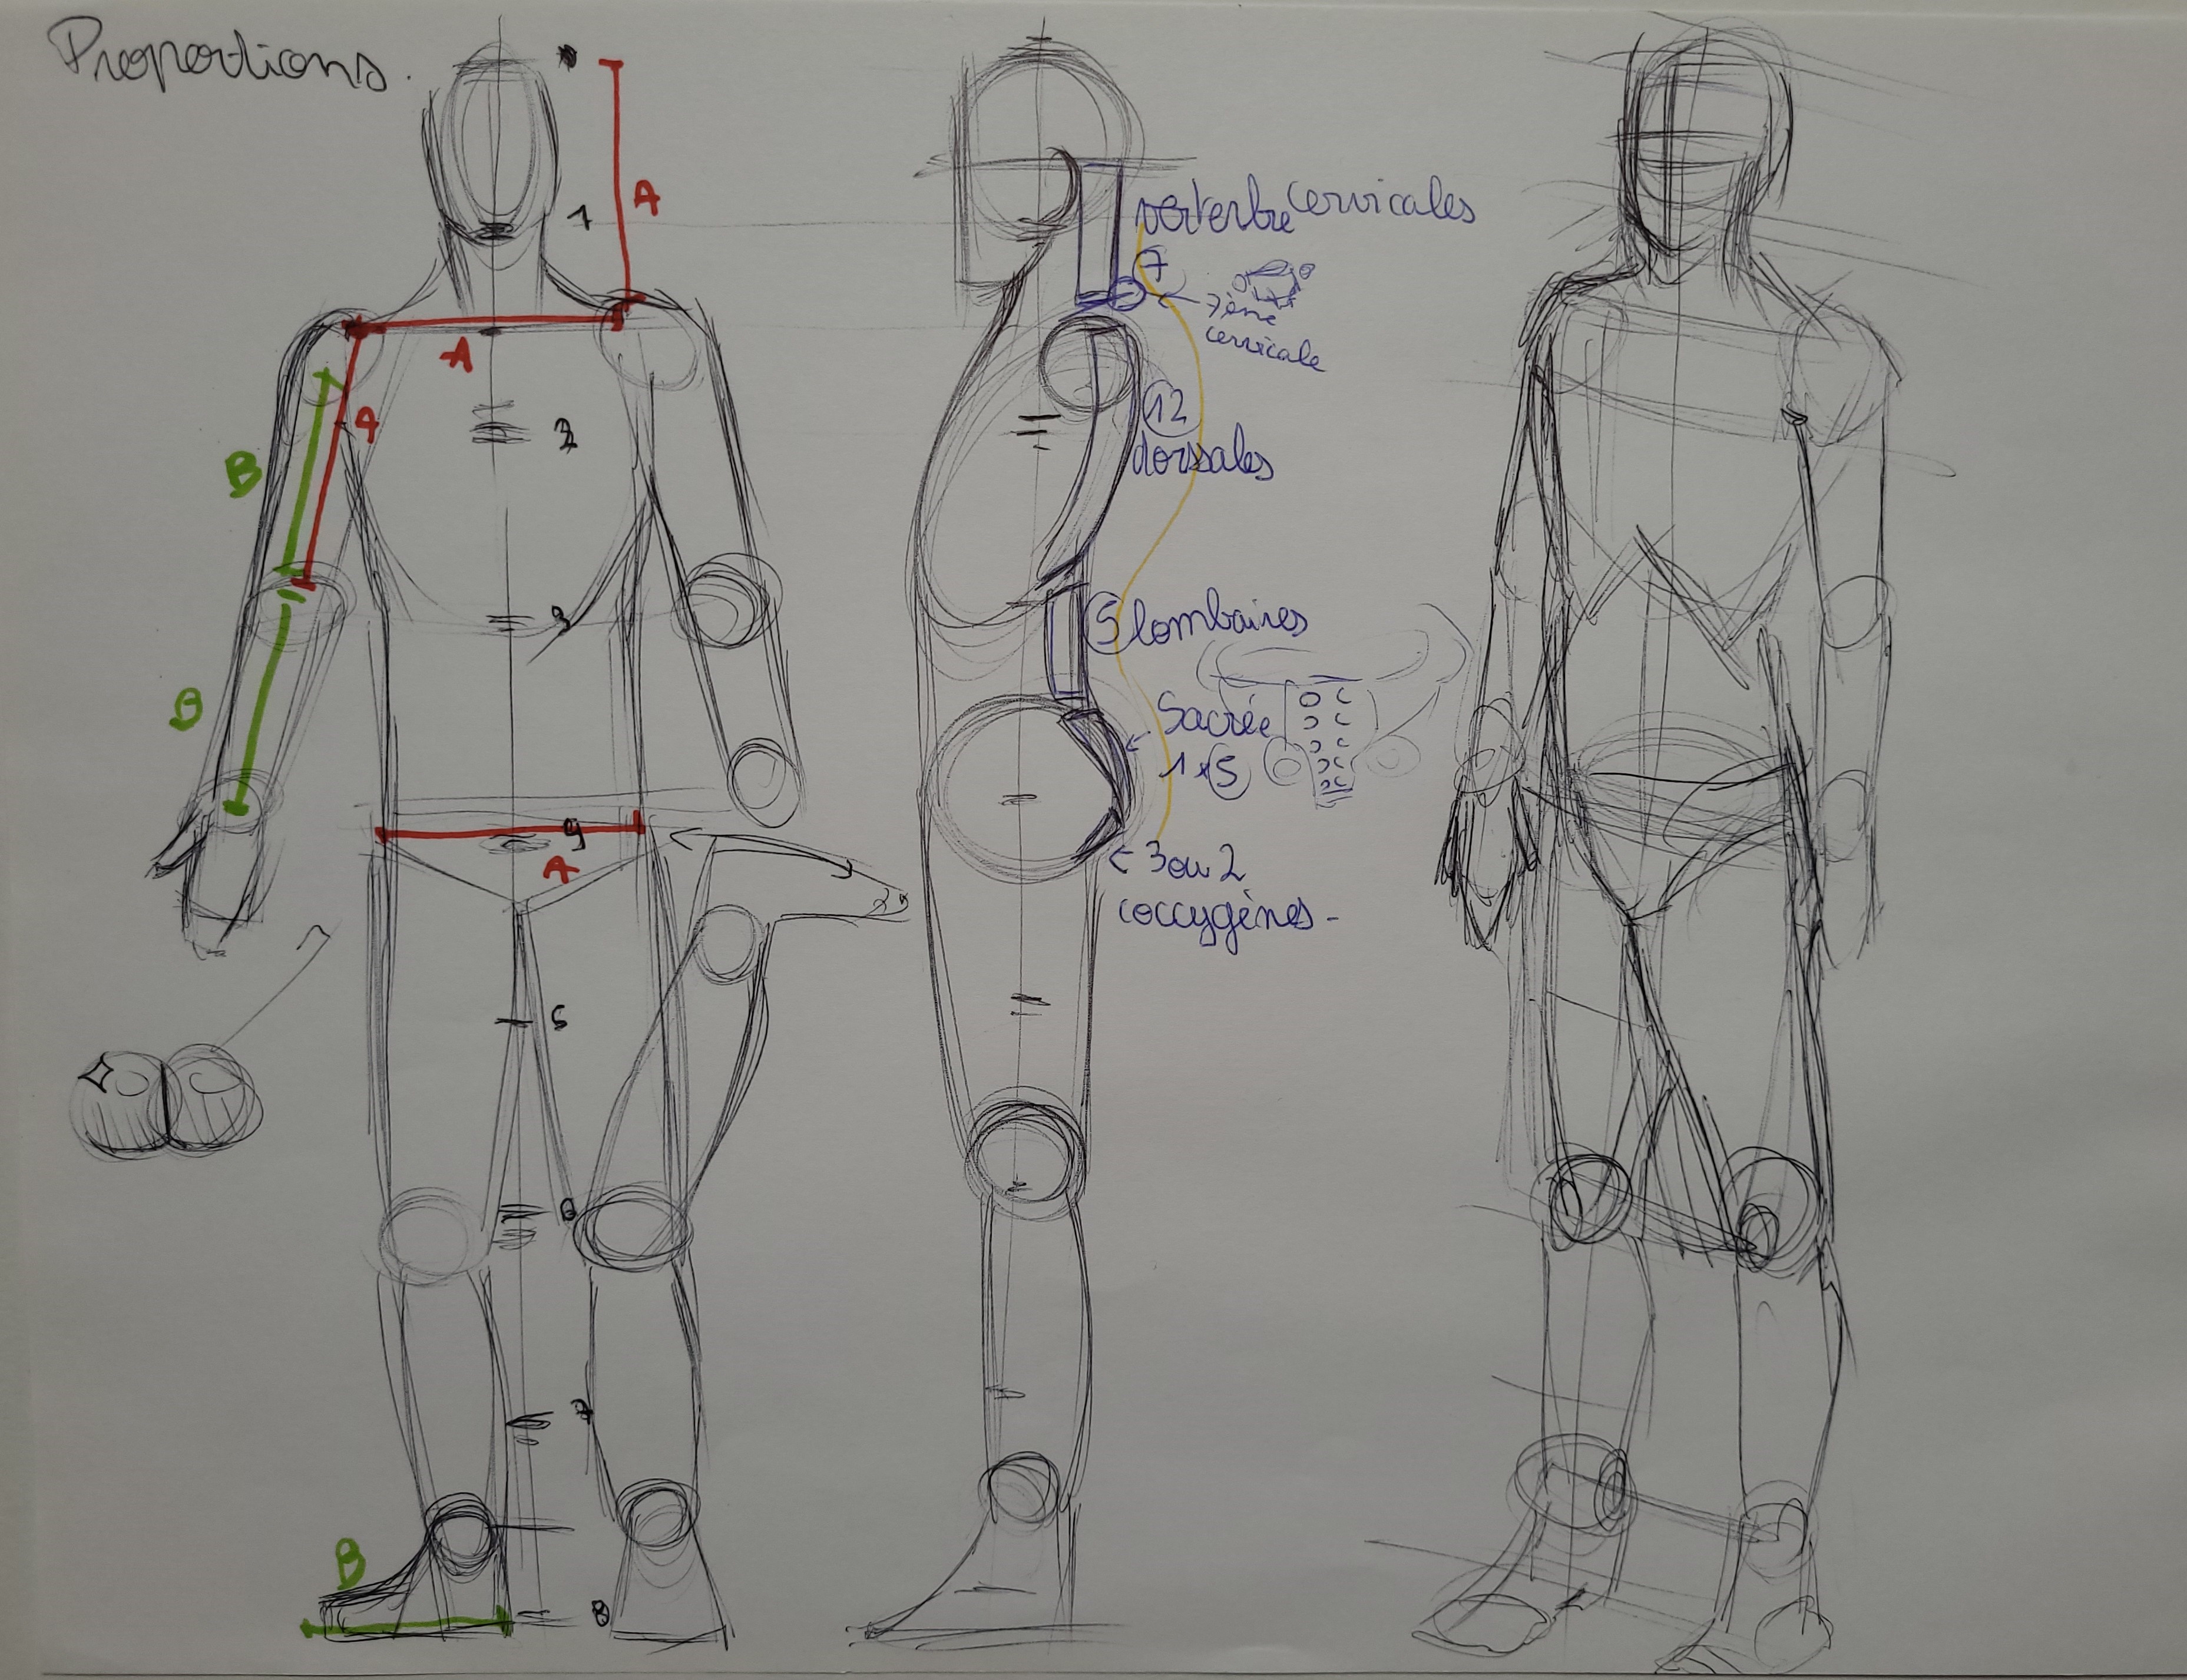 Proportions.
0
A
1
A
A
B
2
3
B
4
A
5
6
7
B
8
verterbre cervicales
7
7ème
cervicale
12
dorsales
5 lombaires
Sacrée
1 5
3 ou 2
coccygènes-